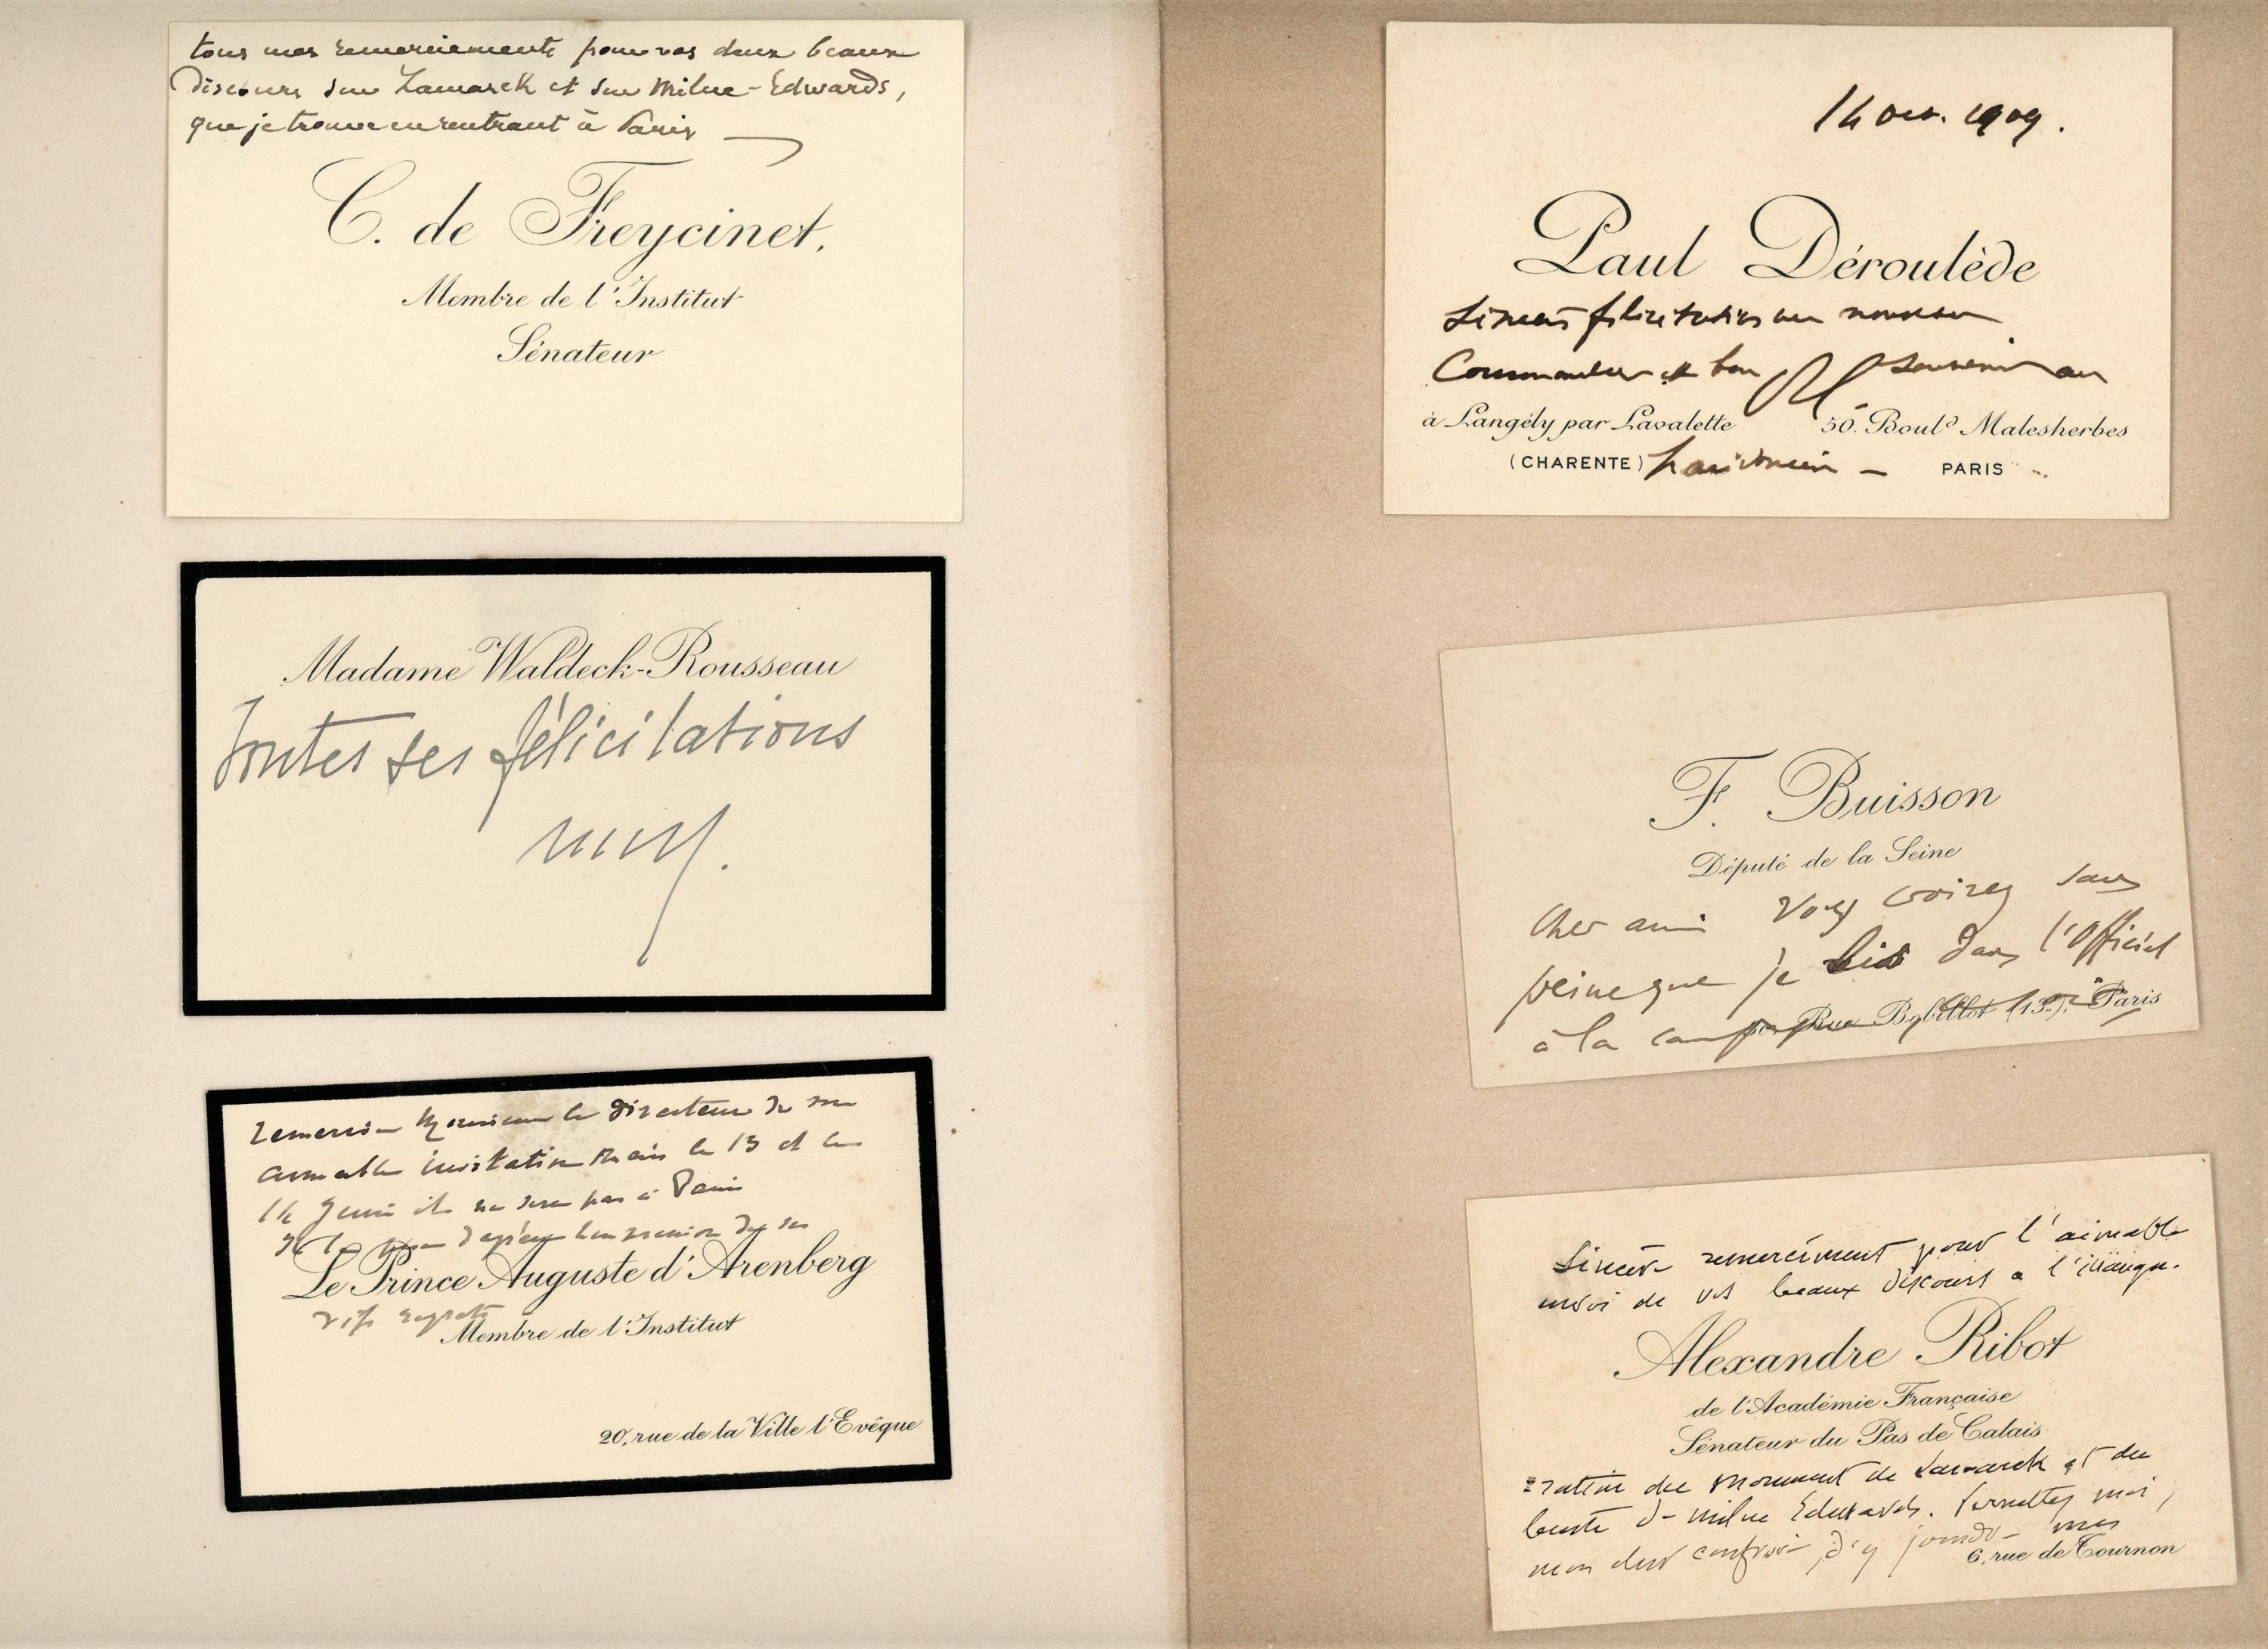 tous mes remerciements pour vos deux beaux
Discours sur Lamarck et sur Milne-Edwards,
que je trouve en rentrant à Paris
C. de Freycinet.
Membre de l'Institut
Sénateur
Madame Waldeck-Rousseau
Toutes ses félicitations
remercie Monsieur le Directeur de son
aimable invitation mais le 13 et le
14 Juin il ne sera pas à Paris
Le Prince Auguste d'Arenberg
vifs regrets
Membre de l'Institut
20, rue de la Ville l'Evêque
14 1909.
Paul Déroulède
Sincères félicitations au nouveau
Commandeur et bon souvenir au
à Langély par Lavalette 50. Boul.d Malesherbes
(CHARENTE) PARIS
F. Buisson
Député de la Seine
Cher ami Vous croirez sans
peine que je lis dans l'Officiel
Rue Bobillot (13e). Paris
à la campagne
Sincère remerciment pour l'aimable
envoi de vos beaux discours a l'inaugu-
Alexandre Ribot
de l'Académie Française
Sénateur du Pas de Calais
ration du monument de Lamarck et du
buste de Milne Edwards. Permettez moi,
mon cher confrère d'y joindre mes
6, rue de Tournon